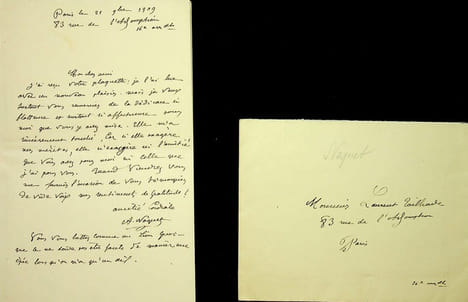 Paris le 21 9bre 1909
83 rue de l'Assomption
16e arrdt
Mon cher ami
J'ai reçu votre plaquette ; je l'ai lue
avec un nouveau plaisir, mais je veux
surtout vous remercier de la dédicace si
flatteuse et surtout si affectueuse pour
moi que vous y avez mise. Elle m'a
sincèrement touché. Car si elle exagère
mes mérites, elle n'exagère ni l'amitié
que vous avez pour moi ni celle que
j'ai pour vous. Quand
me l'occasion de vous
de vive voix mes sentiments de gratitude !
A. Naquet
Vous vous luttez comme un lion
lorsqu'on n'a qu'un
Naquet
Monsieur Laurent Tailhade
83 rue de l'Assomption
Paris
16e arrdt